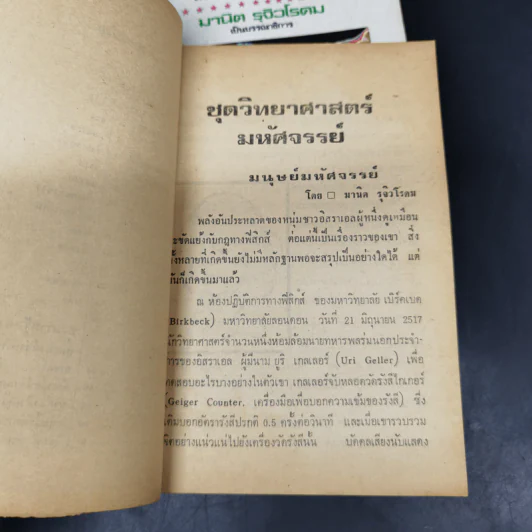 มานิต รุจิวโรดม
เป็นบรรณาธิการ
ชุดวิทยาศาสตร์
มหัศจรรย์
มนุษย์มหัศจรรย์
โดย □ มานิต รุจิวโรดม
พลังอันประหลาดของหนุ่มชาวอิสราเอลผู้หนึ่งดูเหมือน
จะขัดแย้งกับกฎทางฟิสิกส์ ต่อแต่นี้เป็นเรื่องราวของเขา สิ่ง
ทั้งหลายที่เกิดขึ้นยังไม่มีหลักฐานพอจะสรุปเป็นอย่างใดได้ แต่
มันก็เกิดขึ้นมาแล้ว
ณ ห้องปฏิบัติการทางฟิสิกส์ ของมหาวิทยาลัย เบิร์คเบค
(Birkbeck) มหาวิทยาลัยลอนดอน วันที่ 21 มิถุนายน 2517
นักวิทยาศาสตร์จำนวนหนึ่งห้อมล้อมนายทหารพลร่มนอกประจำ
การของอิสราเอล ผู้มีนาม ยูริ เกลเลอร์ (Uri Geller) เพื่อ
ทดสอบอะไรบางอย่างในตัวเขา เกลเลอร์จับหลอดวัดรังสีไกเกอร์
(Geiger Counter, เครื่องมือเพื่อบอกความเข้มของรังสี) ซึ่ง
เดิมบอกอัตรารังสีปรกติ 0.5 ครั้งต่อวินาที และเมื่อเขารวบรวม
จิตอย่างแน่วแน่ไปยังเครื่องวัดรังสีนั้น บัดดลเสียงนับแสดง